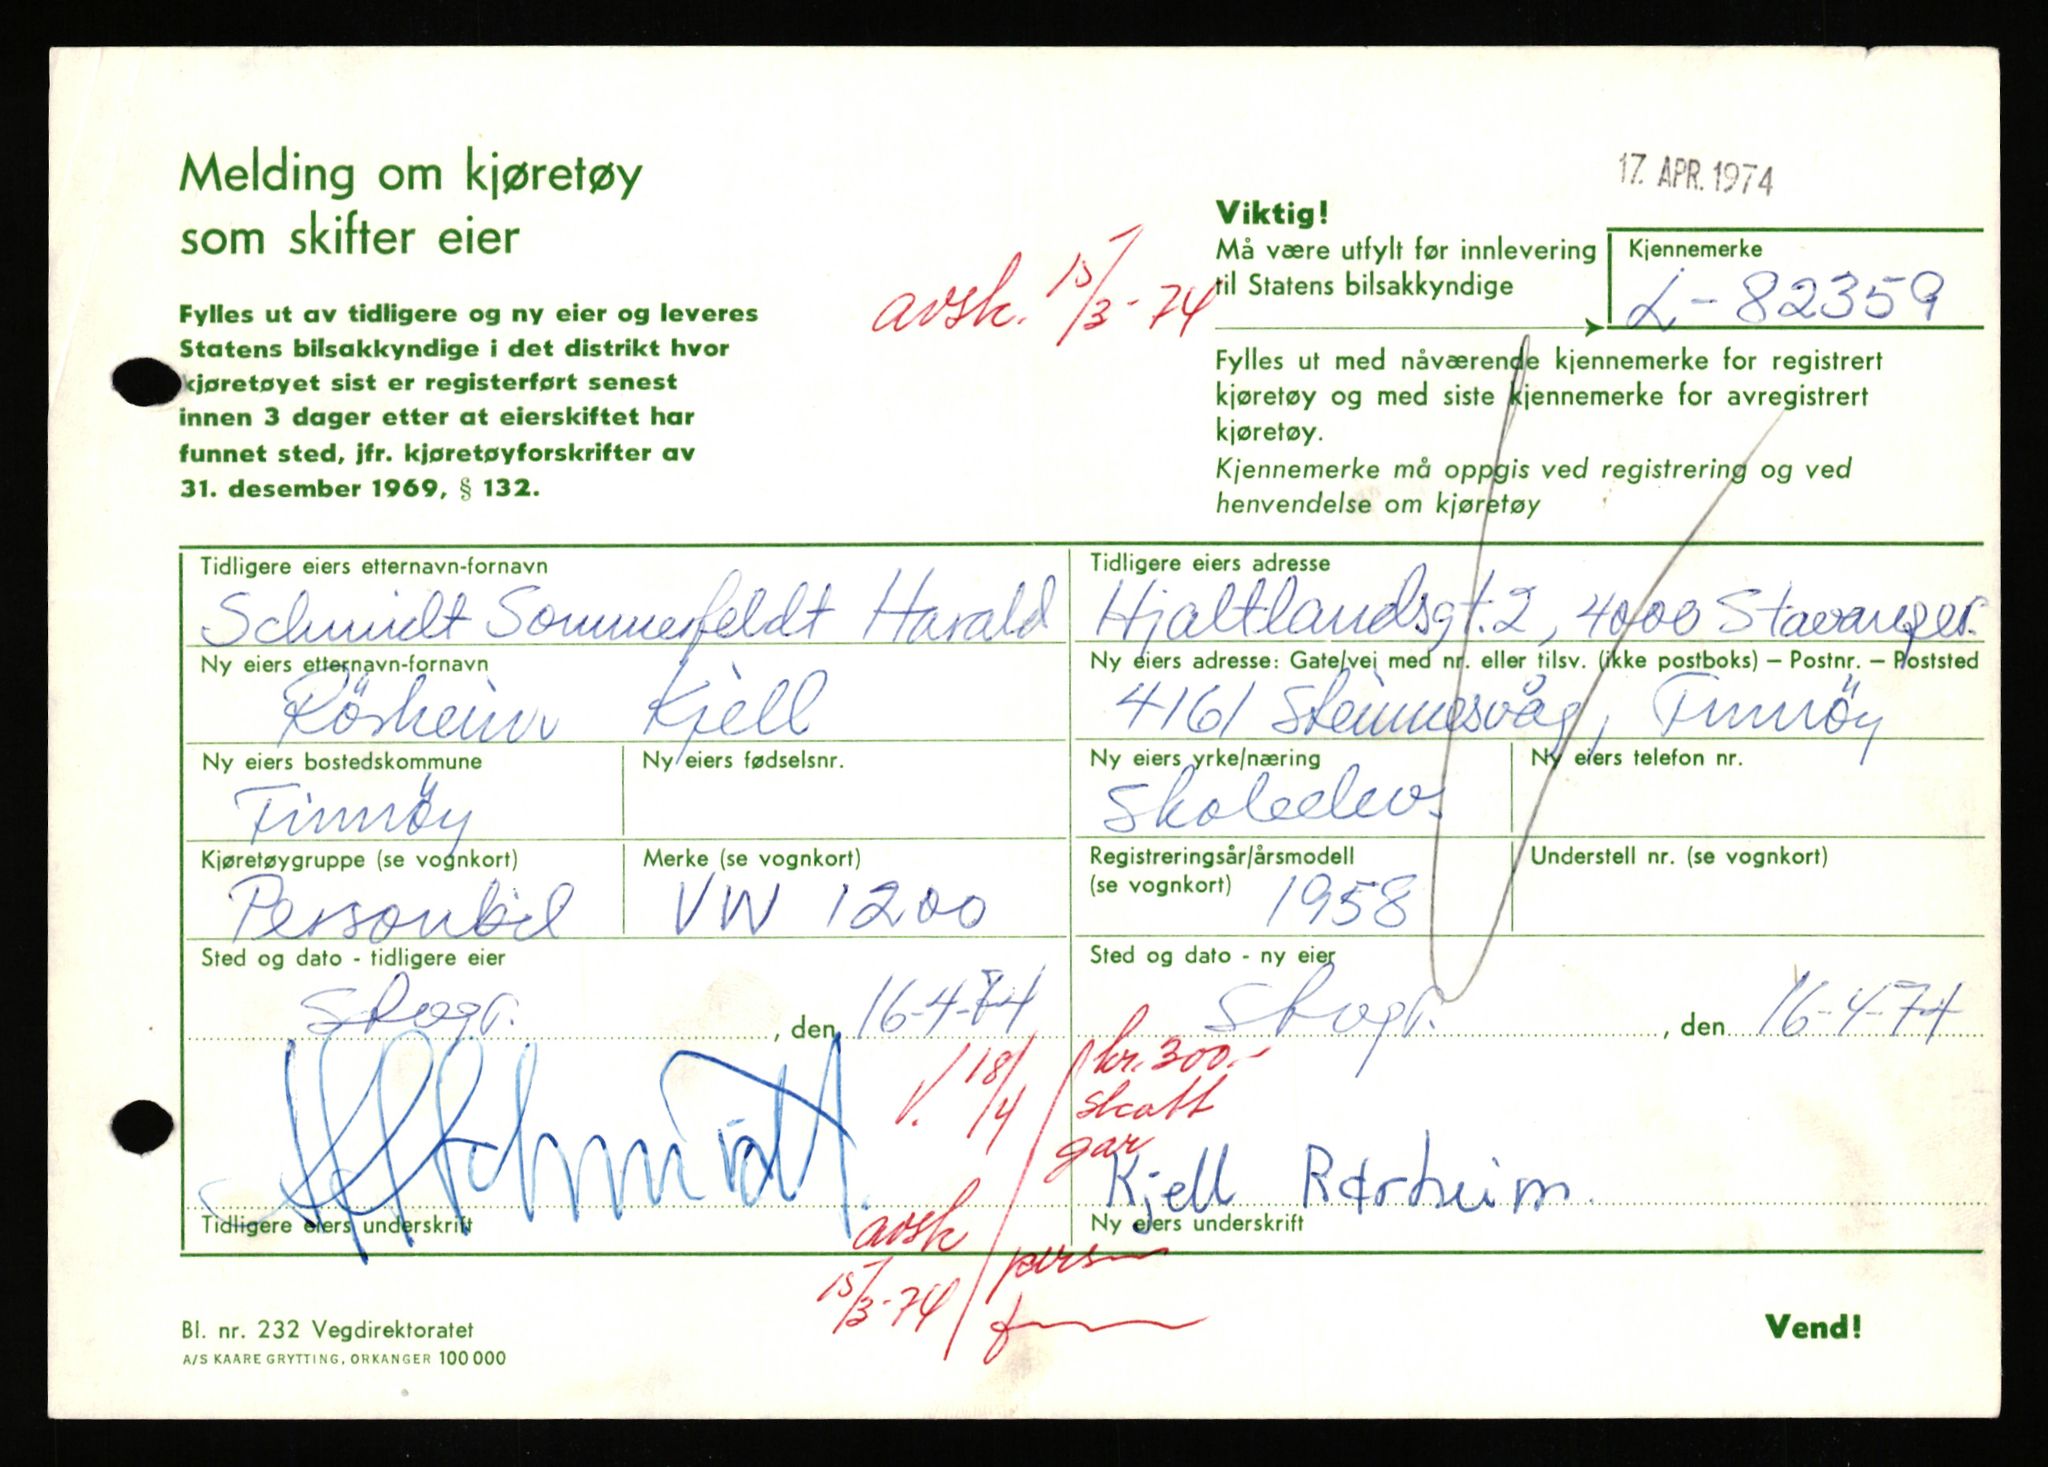 Melding om kjøretøy
som skifter eier
Fylles ut av tidligere og ny eier og leveres
Statens bilsakkyndige i det distrikt hvor
kjøretøyet sist er registerført senest
innen 3 dager etter at eierskiftet har
funnet sted, jfr. kjøretøyforskrifter av
31. desember 1969, § 132.
avsk. 15/3-74
17. APR. 1974
Viktig!
Må være utfylt før innlevering
til Statens bilsakkyndige
Kjennemerke
L-82359
Fylles ut med nåværende kjennemerke for registrert
kjøretøy og med siste kjennemerke for avregistrert
kjøretøy.
Kjennemerke må oppgis ved registrering og ved
henvendelse om kjøretøy
Tidligere eiers etternavn-fornavn
Schmidt Sommerfeldt Harald
Tidligere eiers adresse
Hjaltlandsgt. 2, 4000 Stavanger.
Ny eiers etternavn-fornavn
Rösheim Kjell
Ny eiers adresse: Gate/vei med nr. eller tilsv. (ikke postboks) – Postnr. – Poststed
4161 Steinnesvåg, Finnöy
Ny eiers bostedskommune
Finnöy
Ny eiers fødselsnr.
Ny eiers yrke/næring
Skoleelev.
Ny eiers telefon nr.
Kjøretøygruppe (se vognkort)
Personbil
Merke (se vognkort)
VW 1200
Registreringsår/årsmodell
(se vognkort)
1958
Understell nr. (se vognkort)
Sted og dato - tidligere eier
Stvgr. , den 16-4-74
Sted og dato - ny eier
Stvgr. , den 16-4-74
V. 18/4
kr. 300.-
skatt
gar
Schmidt.
Kjell Rørheim.
Tidligere eiers underskrift
Ny eiers underskrift
avsk
15/3-74
pers
Bl. nr. 232 Vegdirektoratet
A/S KAARE GRYTTING, ORKANGER 100 000
Vend!